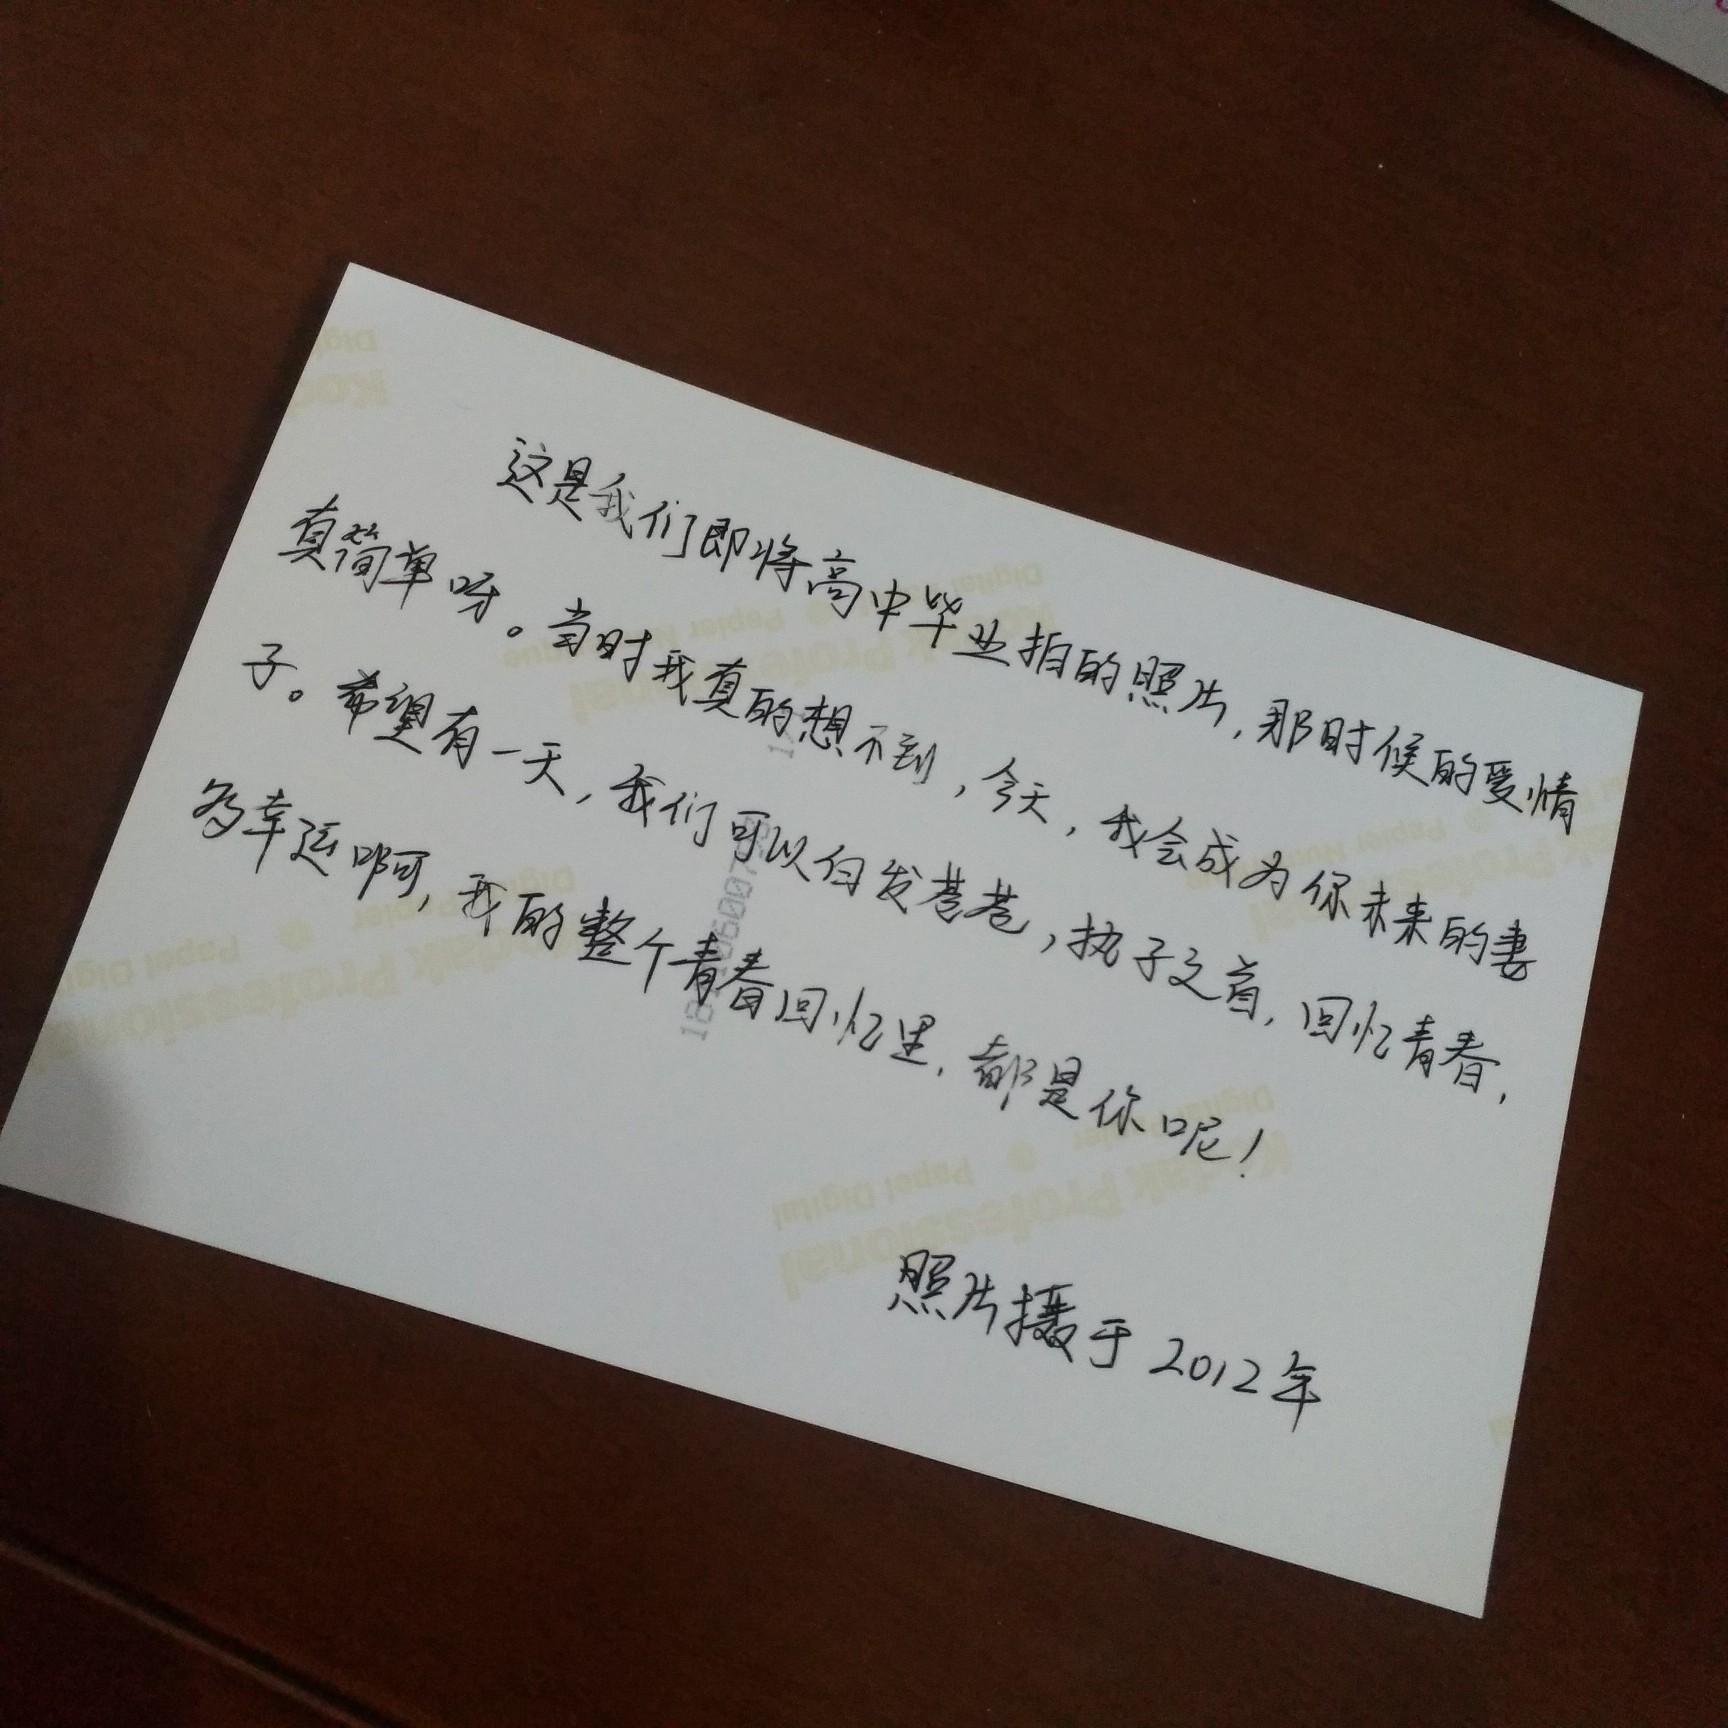 这是我们即将高中毕业拍的照片,那时候的爱情
真简单呀。当时我真的想不到,今天,我会成为你未来的妻
子。希望有一天,我们可以白发苍苍,执子之首,回忆青春,
多幸运啊,我的整个青春回忆里,都是你呢!
照片摄于2012年
Kodak Professional
Papel Digital